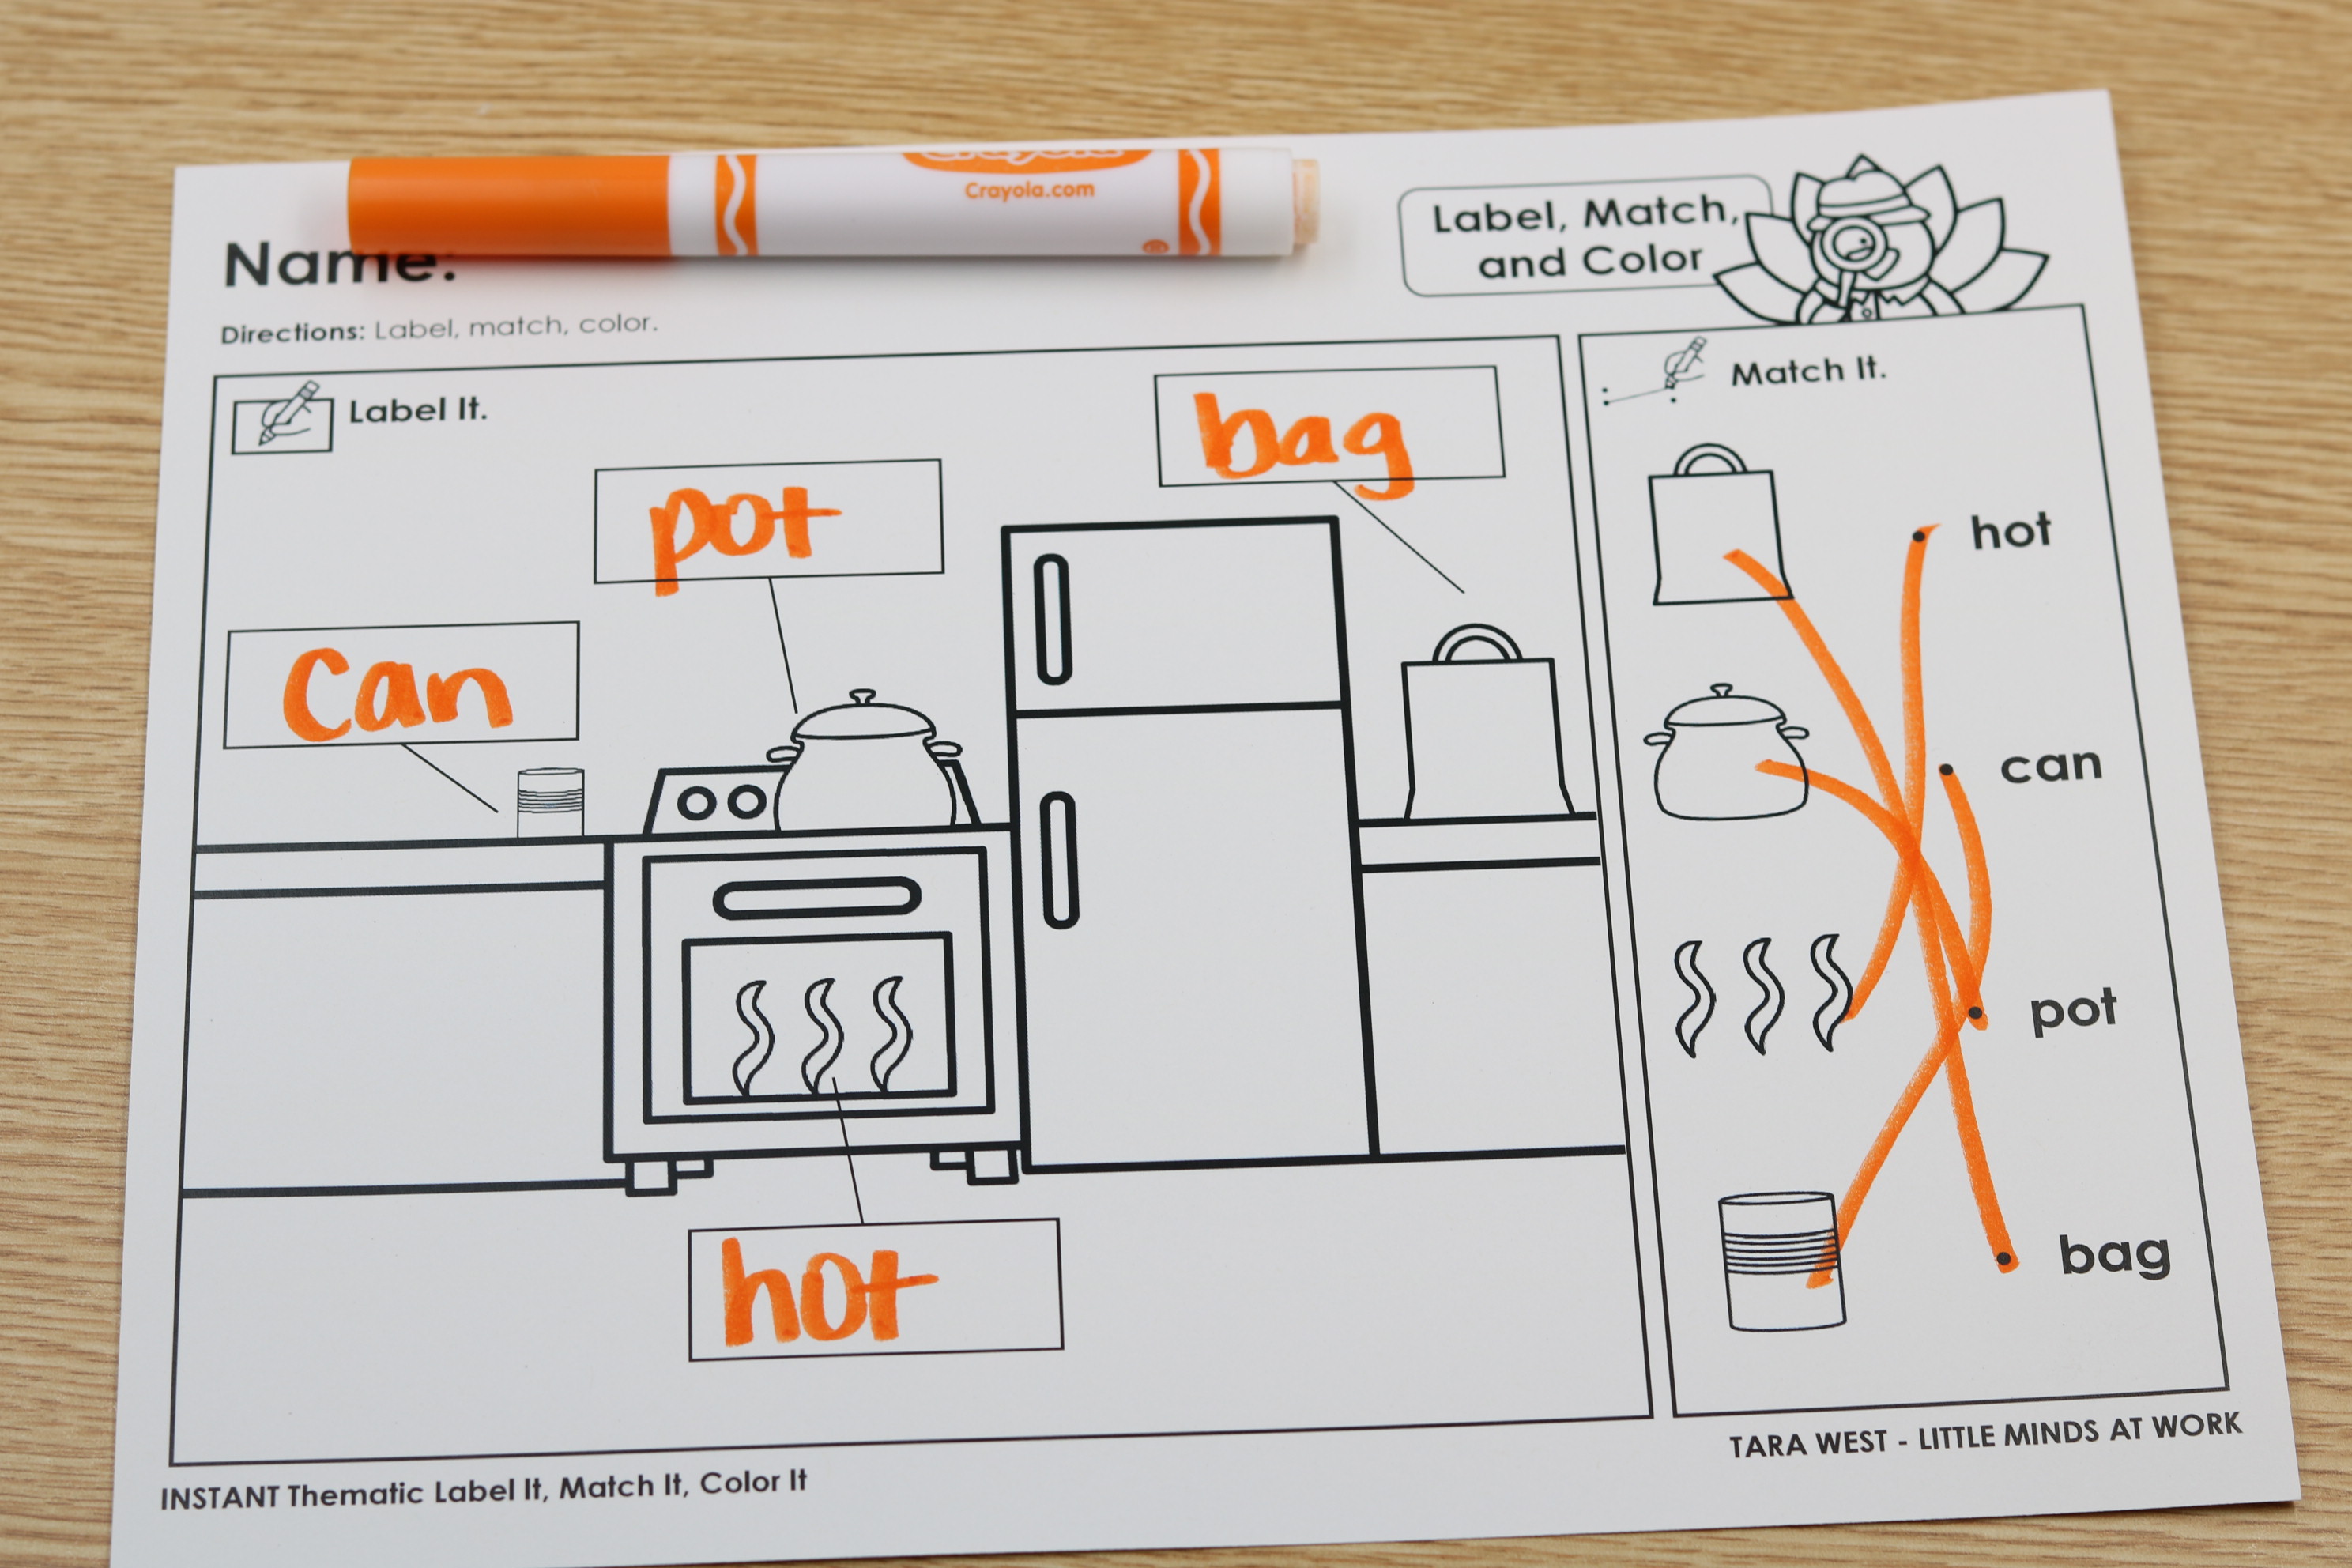 Crayola
Crayola.com
®
Name:
Label, Match,
and Color
Directions: Label, match, color.
Label It.
bag
pot
can
hot
Match It.
hot
can
pot
bag
TARA WEST - LITTLE MINDS AT WORK
INSTANT Thematic Label It, Match It, Color It